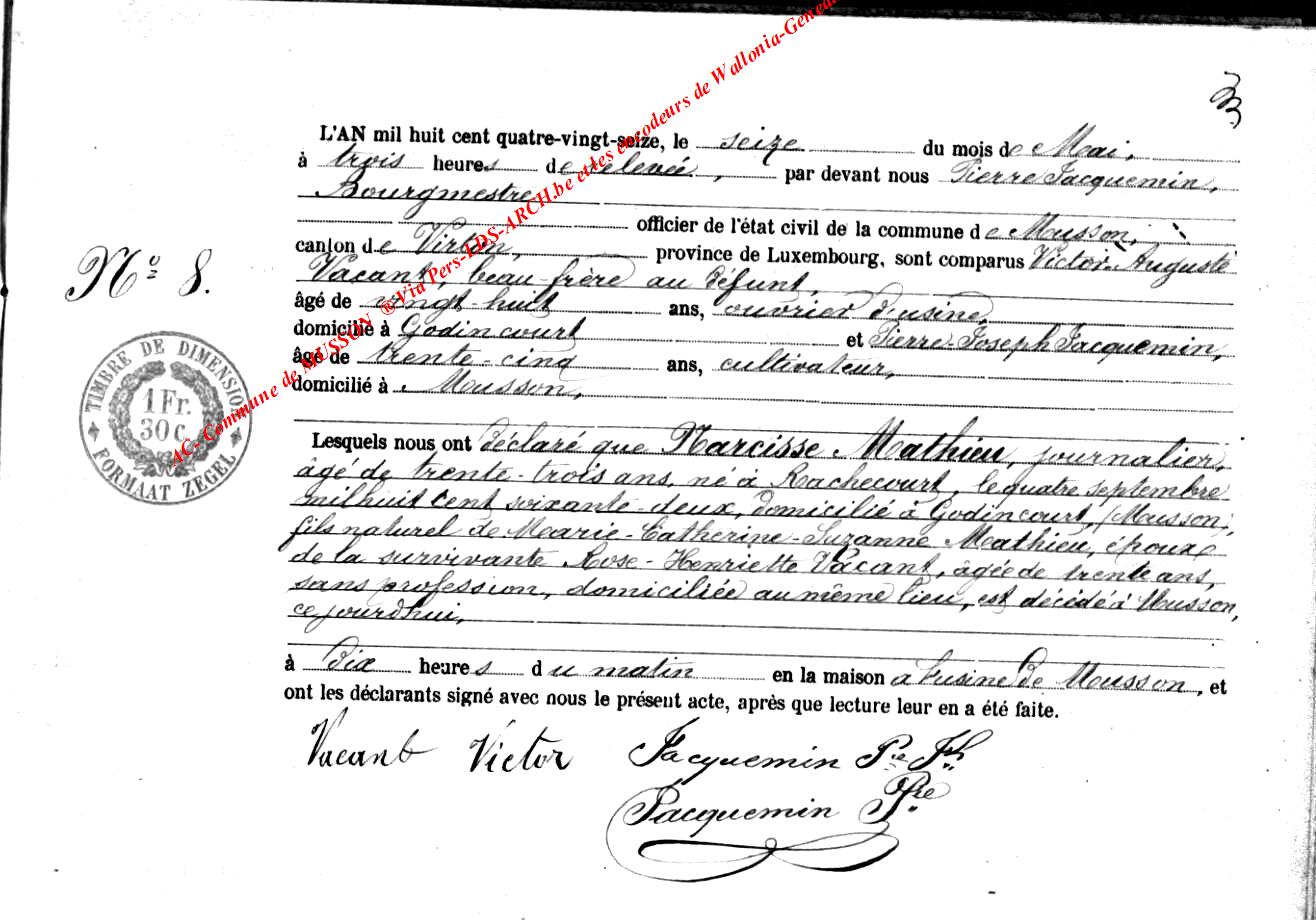 L'AN mil huit cent quatre-vingt-seize, le seize du mois de Mai,
à trois heures de relevée, par devant nous Pierre Jacquemin,
Bourgmestre
officier de l'état civil de la commune de Musson,
canton de Virton, province de Luxembourg, sont comparus Victor-Auguste
Vacant, beau-frère au défunt,
âgé de vingt huit ans, ouvrier d'usine,
domicilié à Godincourt et Pierre Joseph Jacquemin,
âgé de trente-cinq ans, cultivateur,
domicilié à Musson,
Nº 8.
TIMBRE DE DIMENSION
1 Fr.
30 c.
FORMAAT ZEGEL
Lesquels nous ont déclaré que Narcisse Mathieu, journalier,
âgé de trente-trois ans, né à Rachecourt, le quatre septembre
mil huit cent soixante-deux, domicilié à Godincourt, (Musson),
fils naturel de Marie-Catherine-Suzanne Mathieu, époux
de la survivante Rose-Henriette Vacant, âgée de trente ans,
sans profession, domiciliée au même lieu, est décédé à Musson,
ce jourdhui,
à dix heures du matin en la maison à l'usine de Musson, et
ont les déclarants signé avec nous le présent acte, après que lecture leur en a été faite.
Vacant Victor Jacquemin Pre Jph
Jacquemin Pre
AC- Commune de MUSSON ®Via Pers-LDS-ARCH.be et les encodeurs de Wallonia-Gened